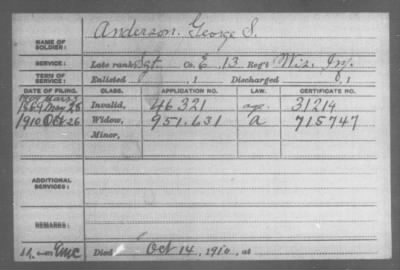 Anderson. George S.
NAME OF SOLDIER:
SERVICE: Late rank Sgt Co. E, 13 Reg't Wis. Inf.
TERM OF SERVICE: Enlisted , 1 Discharged , 1
DATE OF FILING. CLASS. APPLICATION NO. LAW. CERTIFICATE NO.
May 25 Invalid, 46321 31214
1910 Oct 26 Widow, 951.631 a 715747
Minor,
ADDITIONAL SERVICES:
REMARKS:
Died Oct 14, 1910, at